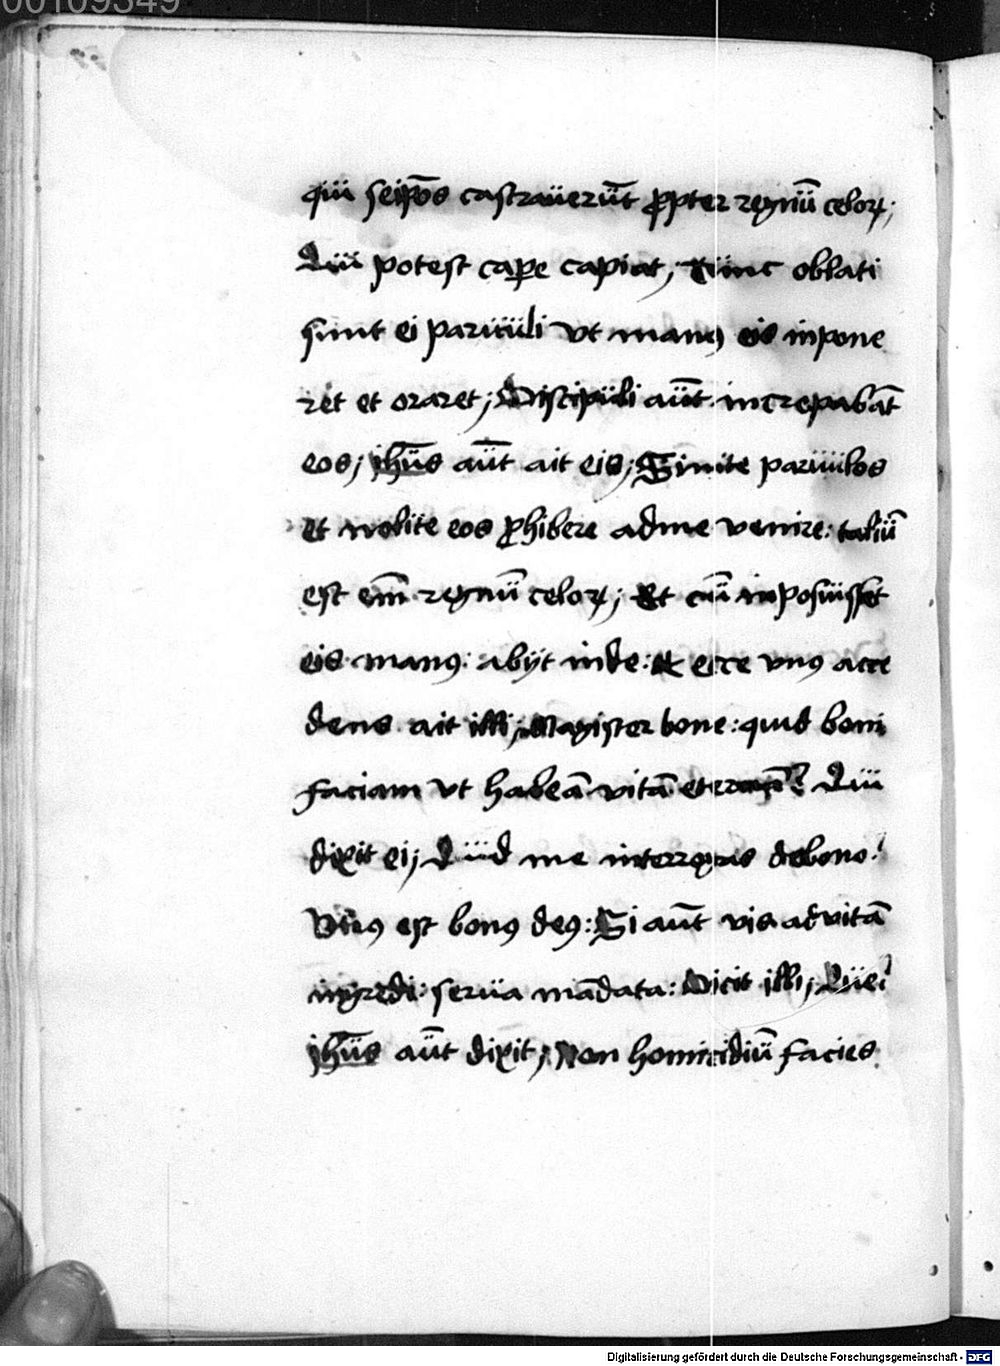 00109349
qui seip̄os castrauerūt ꝓpter regnū celoꝝ;
Qui potest cape capiat, Tunc oblati
sunt ei paruuli vt manꝰ eis inpone
ret et oraret; Discipuli aūt increpabāt
eos; ihūs aūt ait eis; Sinite paruulos
et nolite eos ꝓhibere adme venire: taliū
est em̄ regnū celoꝝ; Et cū inposuisset
eis manꝰ: abijt inde: Et ecce vnꝰ acce
dens ait illi; Magister bone: quid boni
faciam vt habeā vitā eternā? Qui
dixit ei; Quid me interrogas debono?
Vnꝰ est bonꝰ deꝰ: Si aūt vis ad vitā
ingredi: serua mādata: Dicit illi; Que?
ihūs aūt dixit; Non homicidiū facies
Digitalisierung gefördert durch die Deutsche Forschungsgemeinschaft - DFG